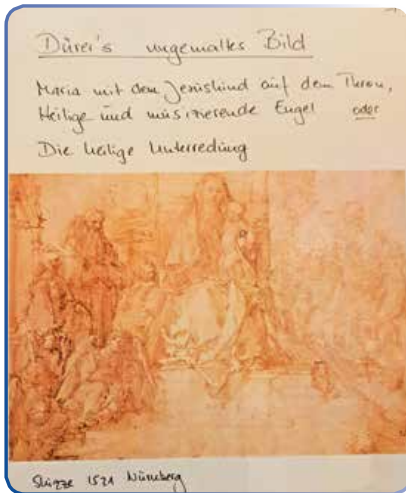 Dürer's ungemaltes Bild
Maria mit dem Jesuskind auf dem Thron,
Heilige und musizierende Engel oder
Die heilige Unterredung
Skizze 1521 Nürnberg